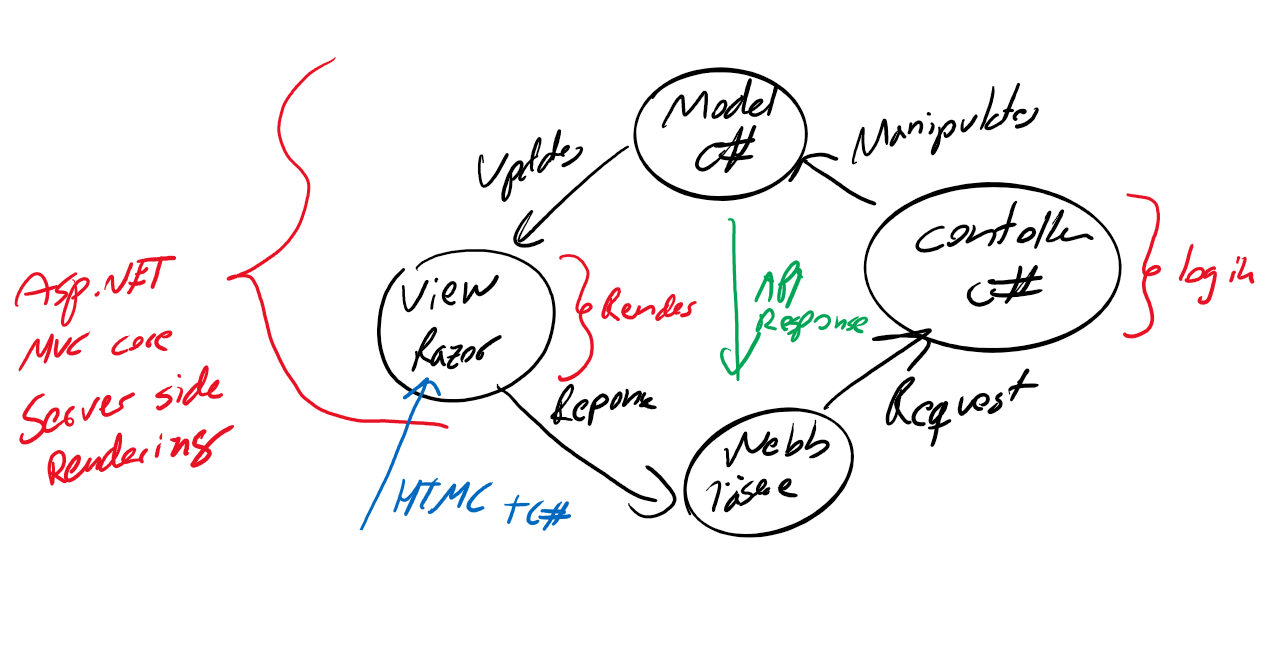 Model
C#
Manipulates
Updates
Contoller
C#
log in
View
Razor
Render
API
Response
Asp.NET
MVC core
Server side
Rendering
Reponse
Request
Webb
läsare
HTML + C#